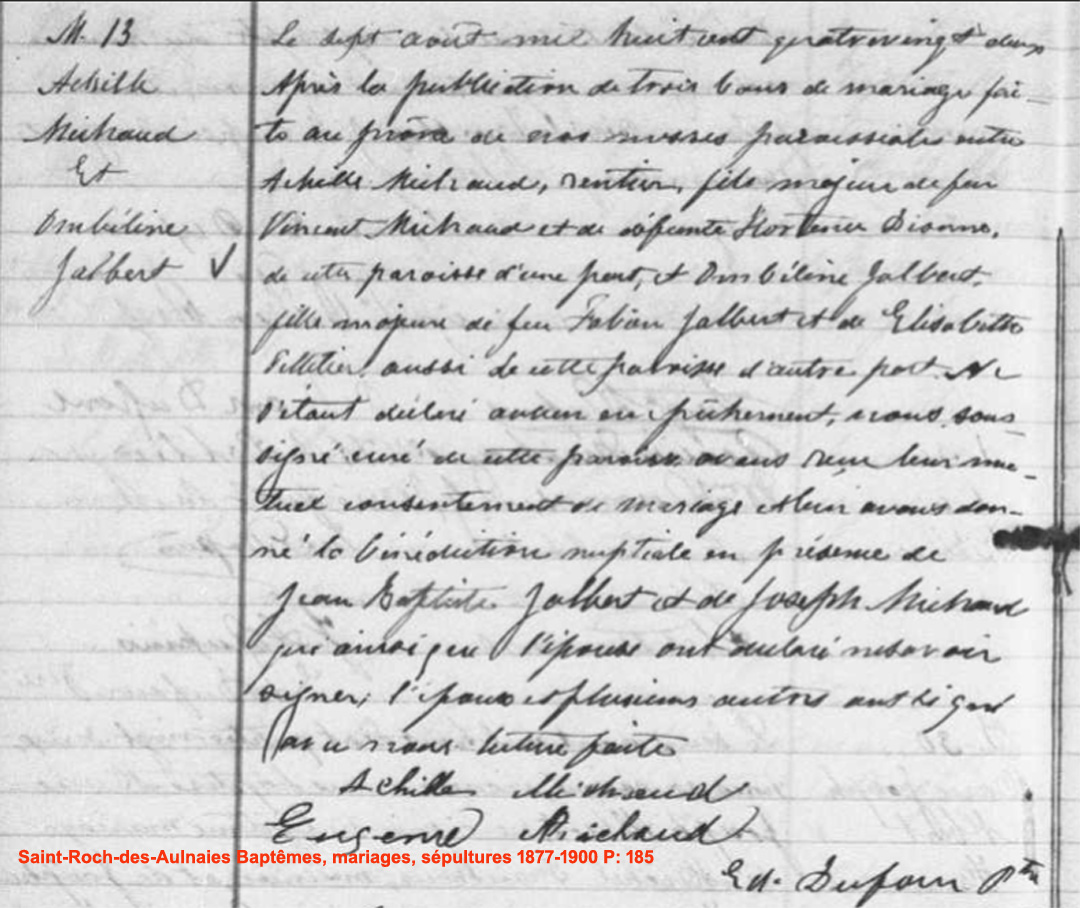 M. 13
Achille
Michaud
Et
Ombéline
Jalbert V
Le sept août mil huit cent quatrevingt deux
Après la publication de trois bans de mariage fai-
te au prône de nos messes paroissiales entre
Achille Michaud, rentier, fils majeur de feu
Vincent Michaud et de défunte Hortense Dionne,
de cette paroisse d'une part, et Ombéline Jalbert,
fille majeure de feu Fabien Jalbert et de Elisabeth
Pelletier aussi de cette paroisse d'autre part. Ne
s'étant déclaré aucun empêchement, nous sous-
signé curé de cette paroisse avons reçu leur mu-
tuel consentement de mariage et leur avons don-
né la bénédiction nuptiale en présence de
Jean Baptiste Jalbert et de Joseph Michaud
qui ainsi que l'épouse ont déclaré ne savoir
signer; l'époux et plusieurs autres ont signé
avec nous lecture faite
Achille Michaud
Eugenne Michaud
Ed. Dufour Ptre
Saint-Roch-des-Aulnaies Baptêmes, mariages, sépultures 1877-1900 P: 185